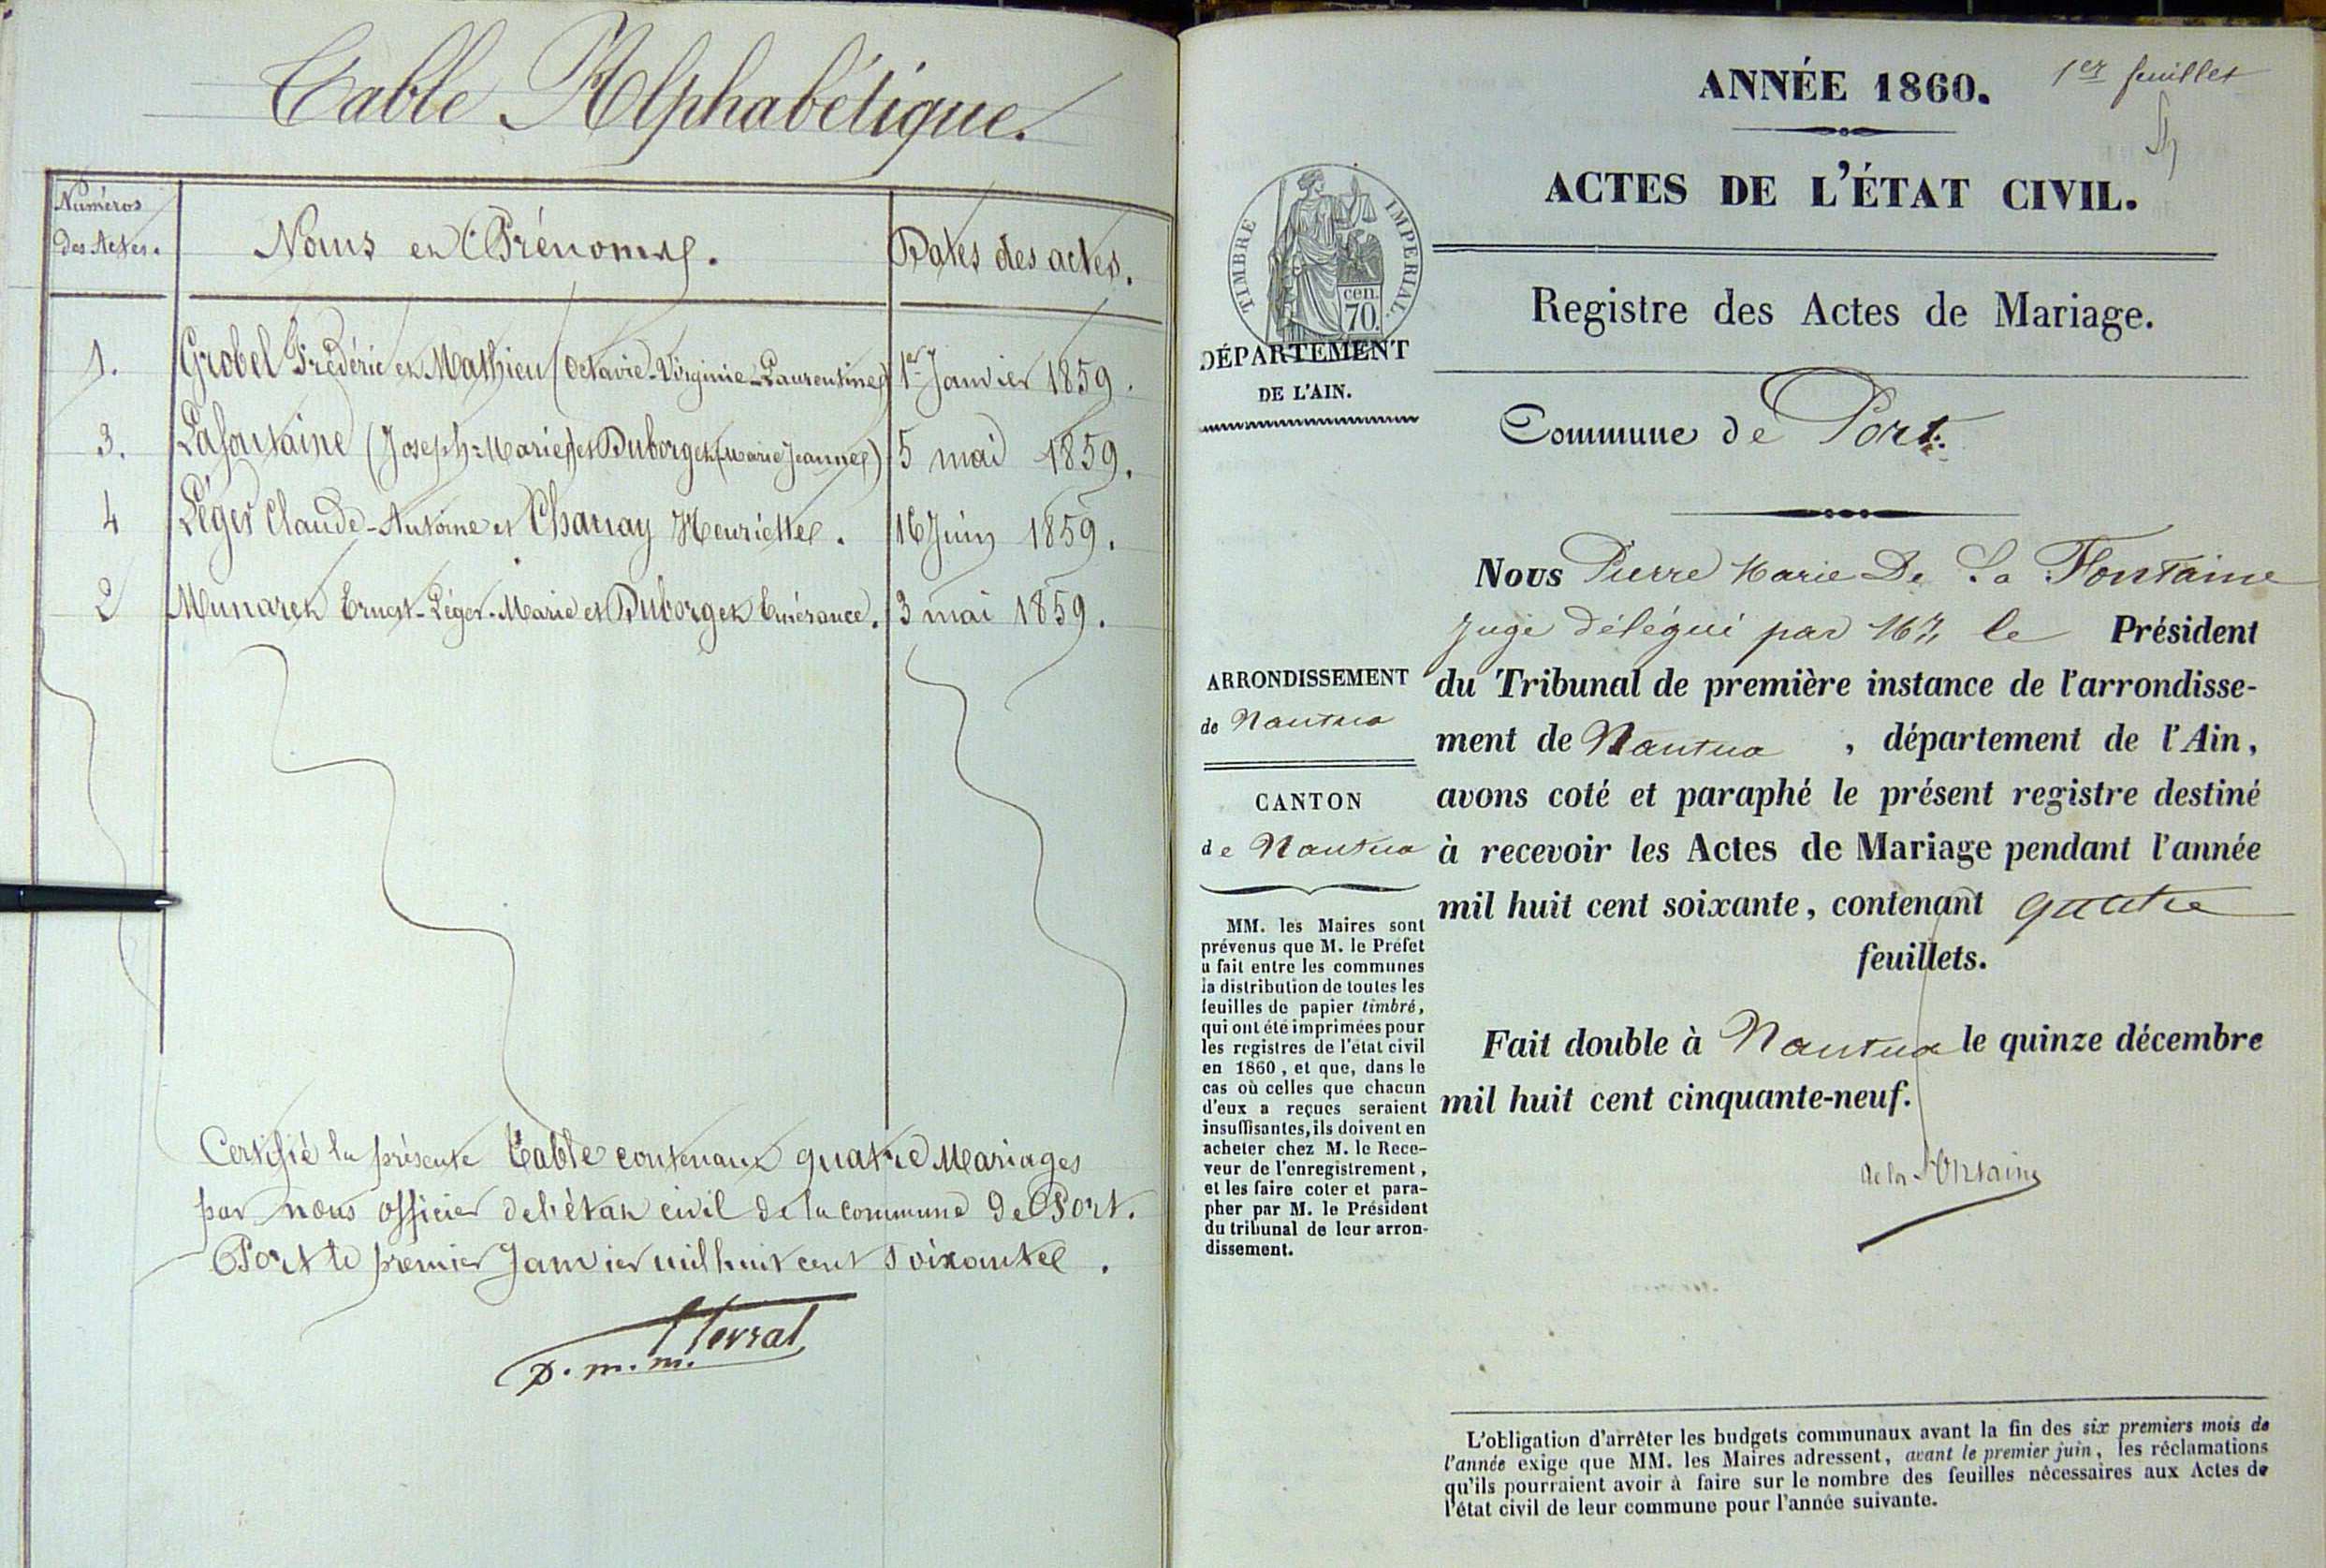 Table Alphabétique.
Numéros
des Actes.
Noms et Prénoms.
Dates des actes.
1. Grobel Frédéric et Mathieu (Octavie-Virginie-Laurentine) 1er Janvier 1859.
3. Lafontaine (Joseph-Marie) et Duborget (Marie Jeanne) 5 mai 1859.
4 Léger Claude-Antoine et Chanay Henriette. 16 Juin 1859.
2 Munaret Ernest-Léger-Marie et Duborget 3 mai 1859.
Certifié la présente Table contenant quatre Mariages
par nous officier de l'état civil de la commune de Port.
Port le premier Janvier mil huit cent soixante.
D. m. m.
1er feuillet
ANNÉE 1860.
ACTES DE L'ÉTAT CIVIL.
TIMBRE IMPERIAL
cen.
70.
DÉPARTEMENT
DE L'AIN.
Registre des Actes de Mariage.
Commune de Port.
Nous Pierre Marie De La Fontaine
Juge délégué par Mr le Président
du Tribunal de première instance de l'arrondisse-
ment de Nantua, département de l'Ain,
avons coté et paraphé le présent registre destiné
à recevoir les Actes de Mariage pendant l'année
mil huit cent soixante, contenant quatre
feuillets.
Fait double à Nantua le quinze décembre
mil huit cent cinquante-neuf.
de la Fontaine
ARRONDISSEMENT
de Nantua
CANTON
de Nantua
MM. les Maires sont
prévenus que M. le Préfet
a fait entre les communes
la distribution de toutes les
feuilles de papier timbré,
qui ont été imprimées pour
les registres de l'état civil
en 1860, et que, dans le
cas où celles que chacun
d'eux a reçues seraient
insuffisantes, ils doivent en
acheter chez M. le Rece-
veur de l'enregistrement,
et les faire coter et para-
pher par M. le Président
du tribunal de leur arron-
dissement.
L'obligation d'arrêter les budgets communaux avant la fin des six premiers mois de
l'année exige que MM. les Maires adressent, avant le premier juin, les réclamations
qu'ils pourraient avoir à faire sur le nombre des feuilles nécessaires aux Actes de
l'état civil de leur commune pour l'année suivante.